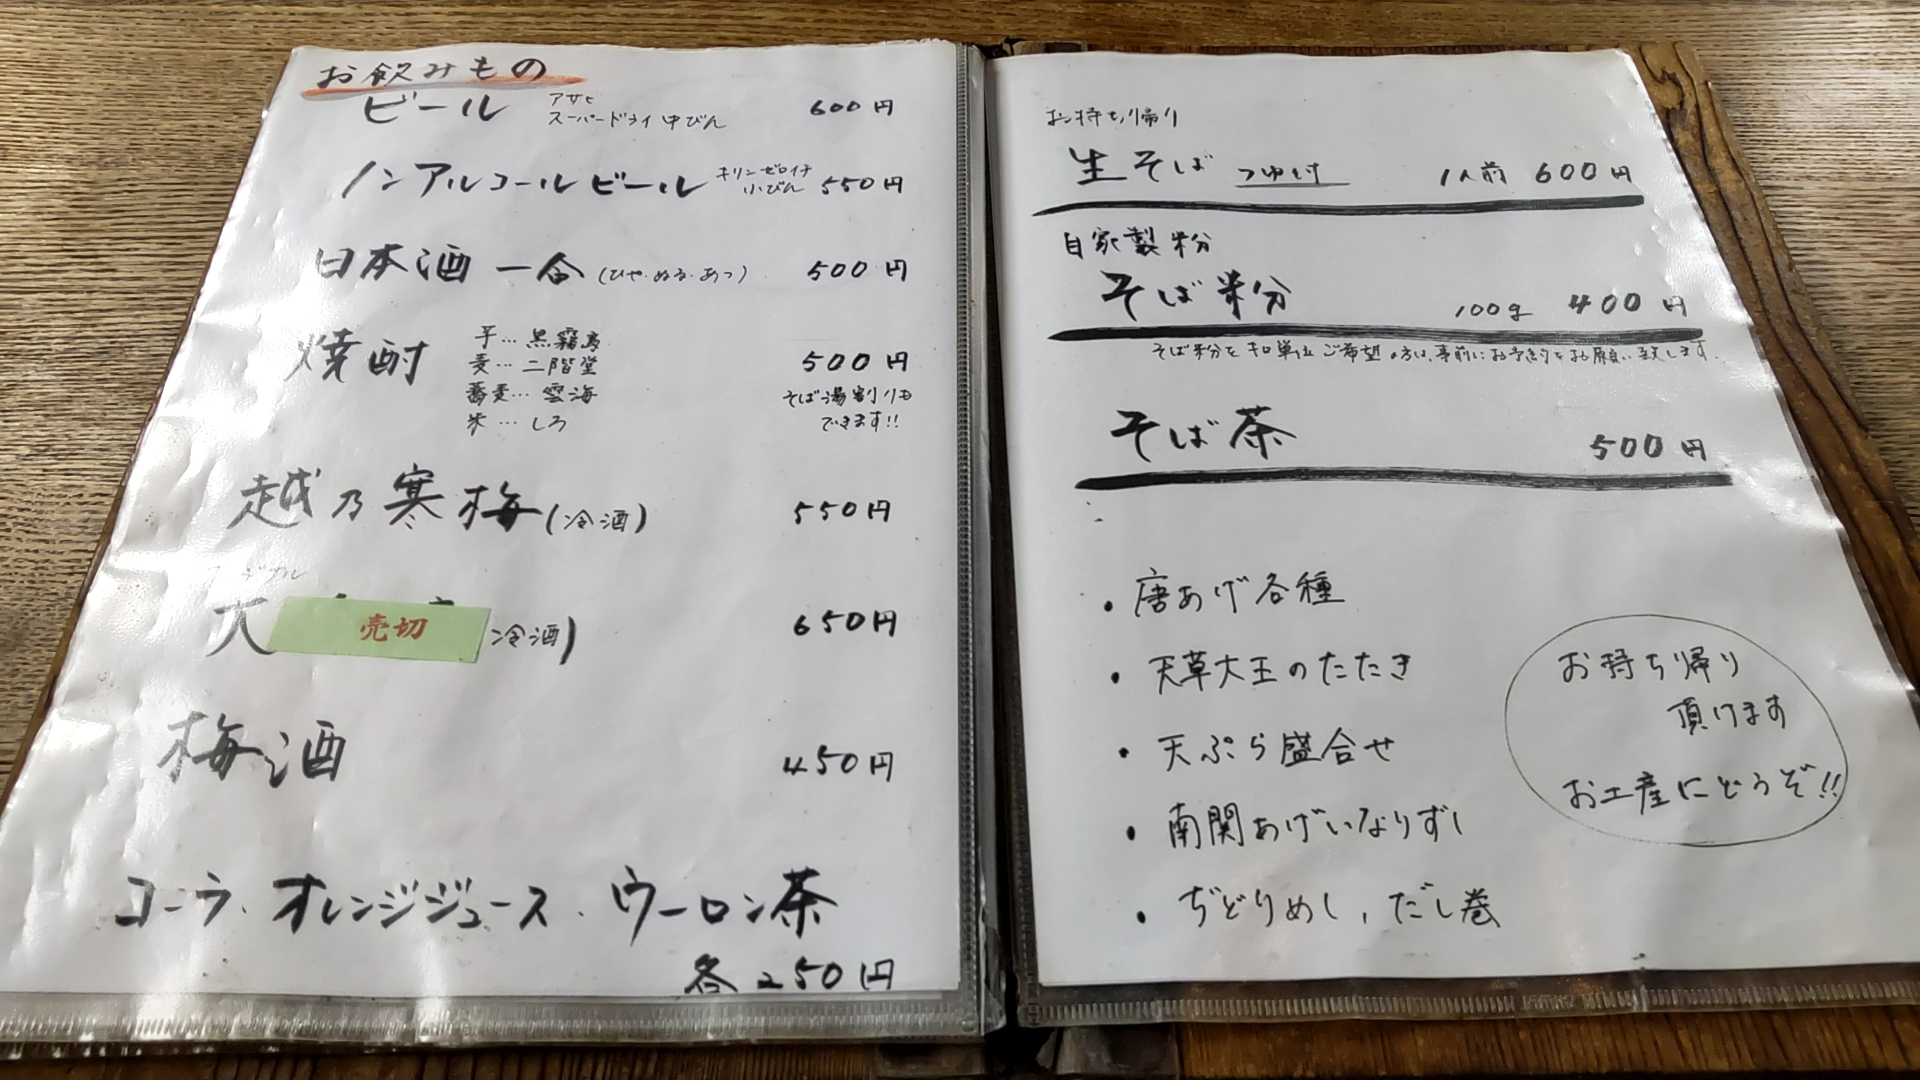 お飲みもの
ビール アサヒ スーパードライ 中びん 600円
ノンアルコールビール キリンゼロイチ 小びん 550円
日本酒 一合 (ひや・ぬる・あつ) 500円
焼酎 500円
芋…黒霧島
麦…二階堂
蕎麦…雲海
米…しろ
そば湯割りも
できます!!
越乃寒梅(冷酒) 550円
売切 冷酒) 650円
梅酒 450円
コーラ・オレンジジュース・ウーロン茶
各250円
お持ち帰り
生そば つゆ付 1人前 600円
自家製粉
そば粉 100g 400円
そば粉をキロ単位ご希望の方は、事前にお予約をお願い致します。
そば茶 500円
・唐あげ各種
・天草大王のたたき
・天ぷら盛合せ
・南関あげいなりずし
・ぢどりめし、だし巻
お持ち帰り
頂けます
お土産にどうぞ!!